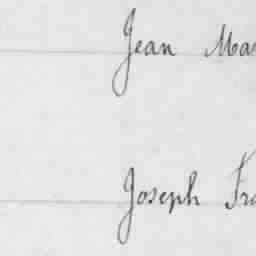 Jean Ma
Joseph Fra